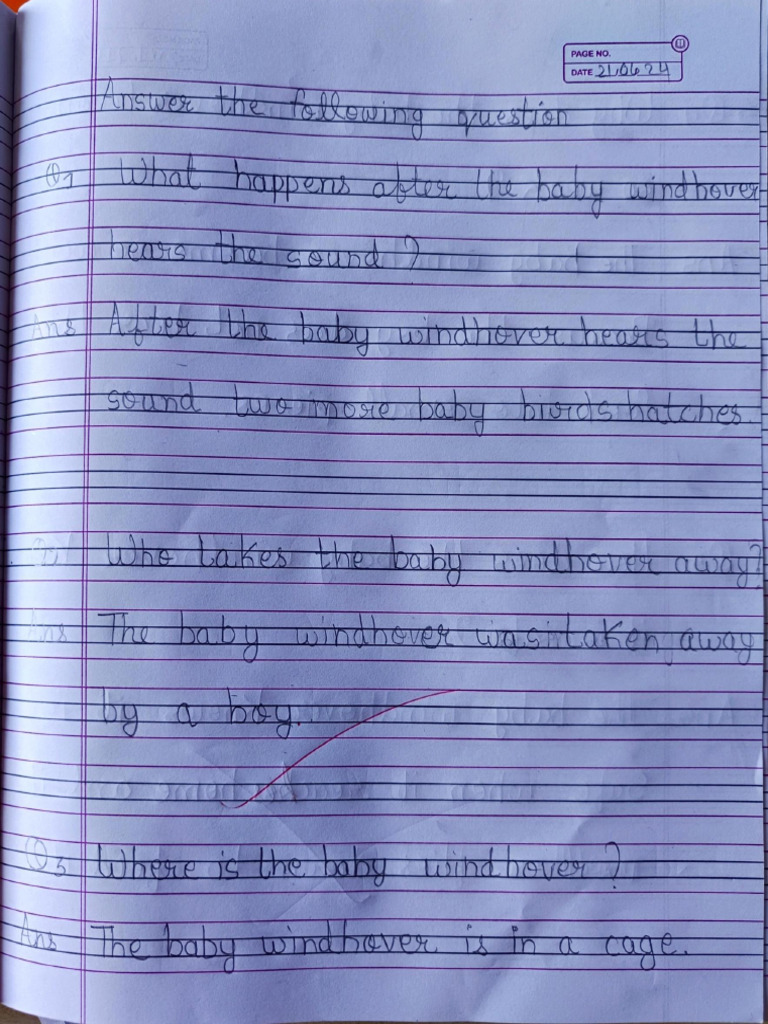 PAGE NO.
DATE 21.06.24
Answer the following question
Q1 What happens after the baby windhover
hears the sound ?
Ans After the baby windhover hears the
sound two more baby birds hatches.
Who takes the baby windhover away?
Ans The baby windhover was taken away
by a boy.
Q3 Where is the baby windhover ?
Ans The baby windhover is in a cage.